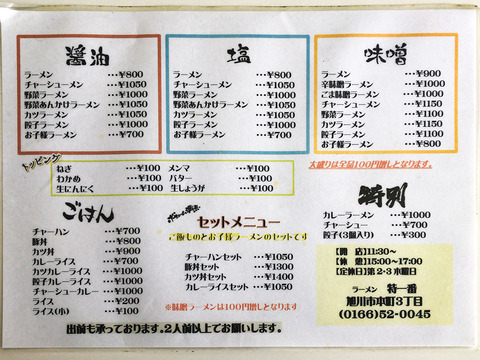 醤油
ラーメン …¥800
チャーシューメン …¥1050
野菜ラーメン …¥1000
野菜あんかけラーメン …¥1050
カツラーメン …¥1050
餃子ラーメン …¥1000
お子様ラーメン …¥700
塩
ラーメン …¥800
チャーシューメン …¥1050
野菜ラーメン …¥1000
野菜あんかけラーメン …¥1050
カツラーメン …¥1050
餃子ラーメン …¥1000
お子様ラーメン …¥700
味噌
ラーメン …¥900
辛味噌ラーメン …¥1000
ごま味噌ラーメン …¥1000
チャーシューメン …¥1150
野菜ラーメン …¥1100
カツラーメン …¥1150
餃子ラーメン …¥1100
お子様ラーメン …¥800
大盛りは全品100円増しとなります。
トッピング
ねぎ …¥100 メンマ …¥100
わかめ …¥100 バター …¥100
生にんにく …¥100 生しょうが …¥100
ごはん
チャーハン …¥700
豚丼 …¥800
カツ丼 …¥900
カレーライス …¥700
カツカレーライス …¥1000
餃子カレーライス …¥1000
チャーシューカレー …¥1000
ライス …¥200
ライス(小) …¥100
セットメニュー
ご飯ものとお子様ラーメンのセットです
チャーハンセット …¥1050
豚丼セット …¥1300
カツ丼セット …¥1400
カレーライスセット …¥1050
※味噌ラーメンは100円増しとなります。
特別
カレーラーメン …¥1000
チャーシュー …¥700
餃子(3個入り) …¥300
【開 店】11:30~
【休 憩】15:00~17:00
【定休日】第2・3水曜日
ラーメン 特一番
旭川市本町3丁目
(0166)52-0045
出前も承っております。2人前以上でお願いします。